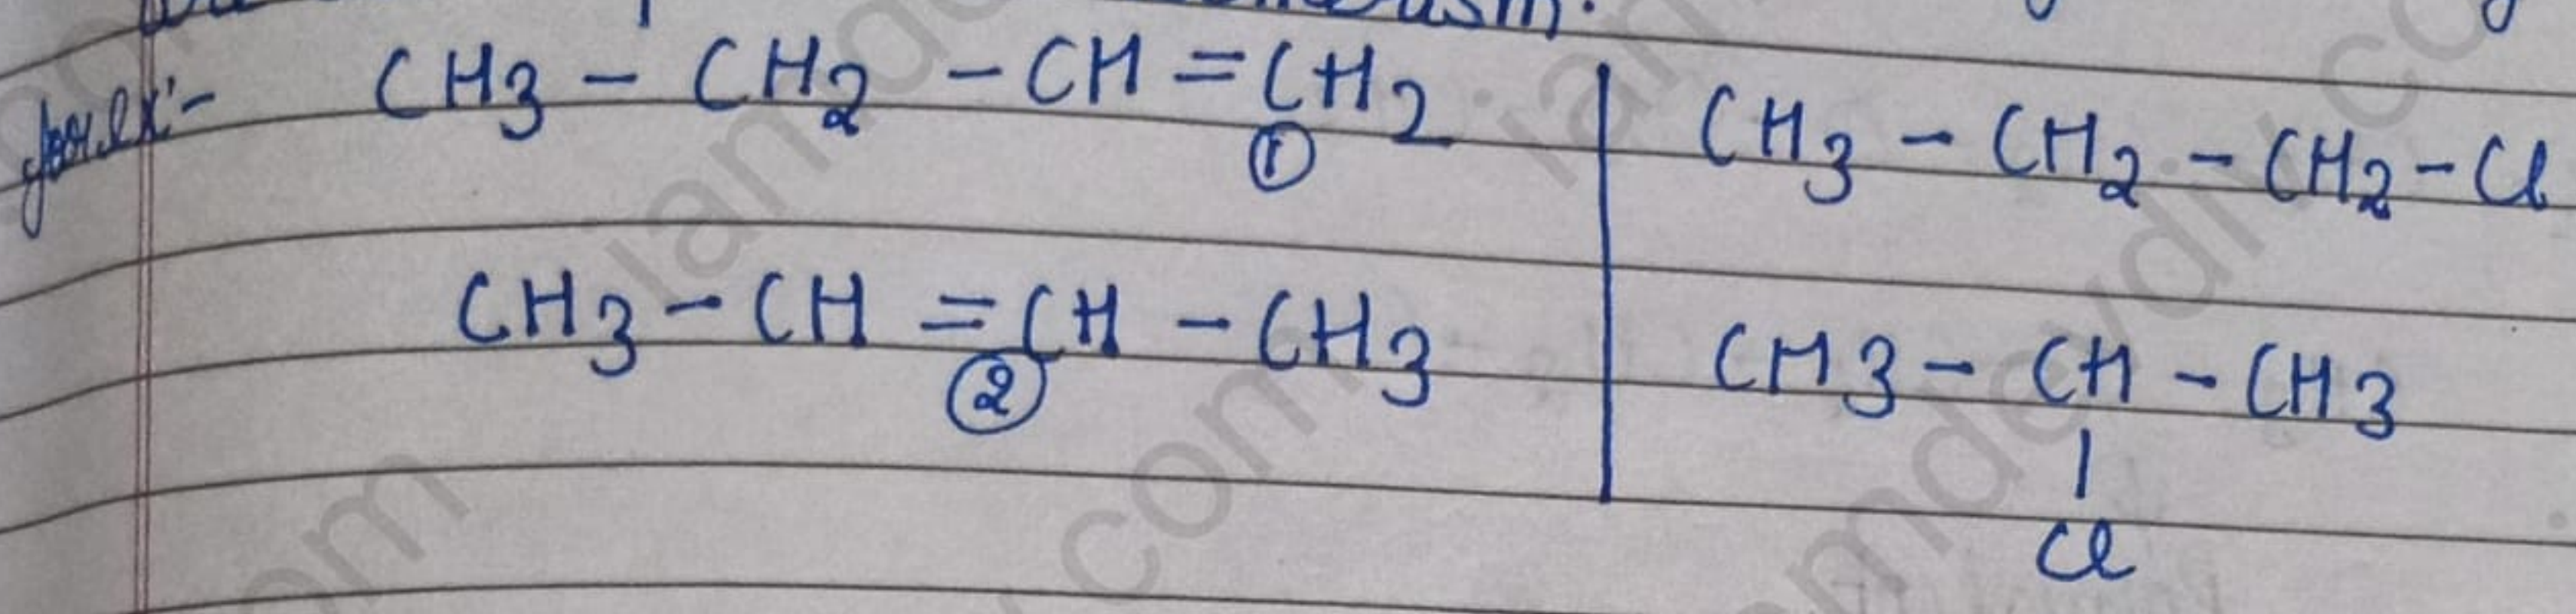 for ex:-
CH3 - CH2 - CH = CH2
①
CH3 - CH = CH - CH3
②
CH3 - CH2 - CH2 - Cl
CH3 - CH - CH3
|
Cl